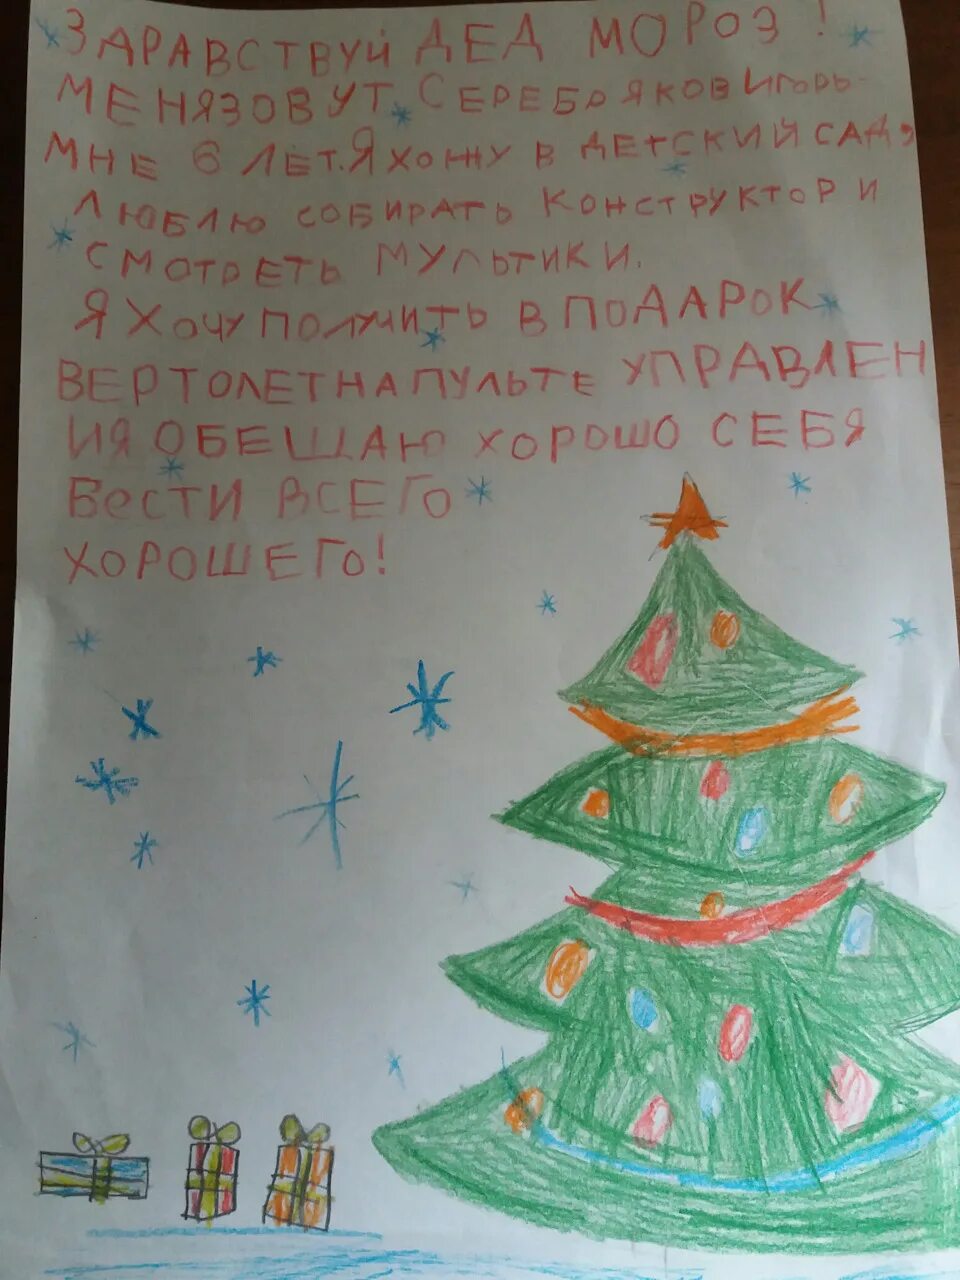 ЗДРАВСТВУЙ ДЕД МОРОЗ!
МЕНЯЗОВУТ СЕРЕБРЯКОВ ИГОРЬ-
МНЕ 6 ЛЕТ.Я ХОЖУ В ДЕТСКИЙ САД,
ЛЮБЛЮ СОБИРАТЬ КОНСТРУКТОР И
СМОТРЕТЬ МУЛЬТИКИ.
Я ХОЧУ ПОЛУЧИТЬ В ПОДАРОК
ВЕРТОЛЕТ НА ПУЛЬТЕ УПРАВЛЕН
ИЯ ОБЕЩАЮ ХОРОШО СЕБЯ
ВЕСТИ ВСЕГО
ХОРОШЕГО!